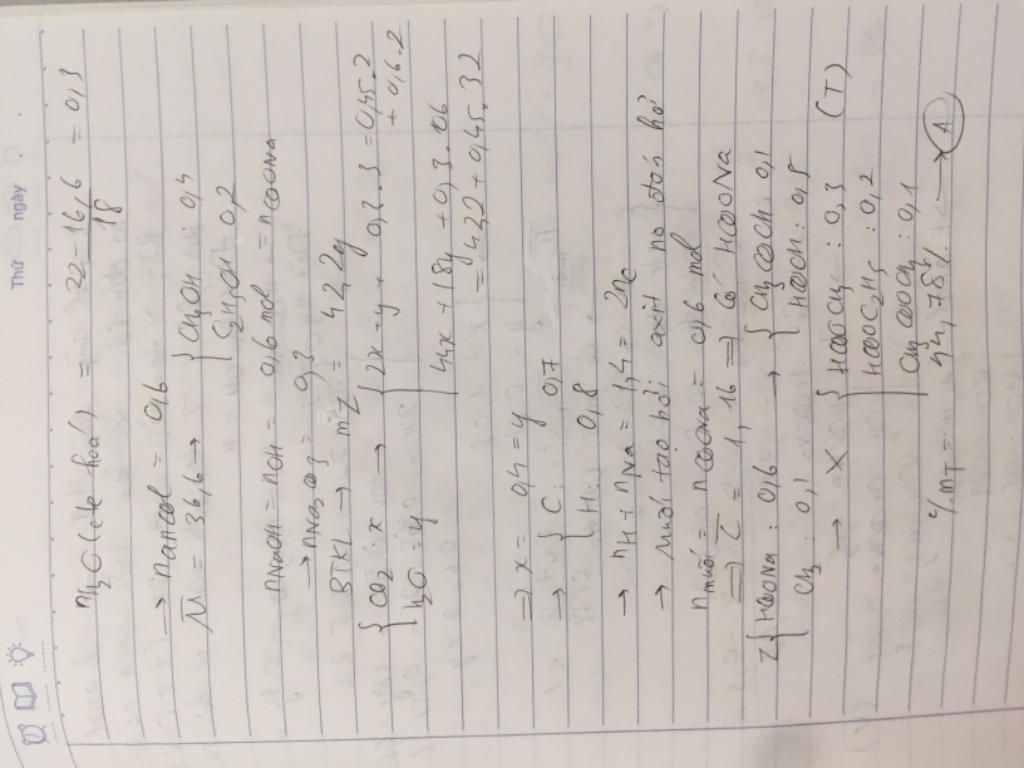 Thứ ngày
nH2O (ete hoá) = (22 - 16,6)/18 = 0,3
→ nancol = 0,6
M̄ = 36,6 → { CH3OH : 0,4
C2H5OH : 0,2
nNaOH = nOH = 0,6 mol = nCOONa
→ nNa2CO3 = 0,3
BTKL → mZ = 42,2g
{ CO2 : x → { 2x + y + 0,3.3 = 0,45.2 + 0,6.2
H2O : y
44x + 18y + 0,3.106 = 42,2 + 0,45.32
⇒ x = 0,4 = y
→ { C : 0,7
H : 0,8
→ nH + nNa = 1,4 = 2nC
→ muối tạo bởi axit no đơn hở
nmuối = nCOONa = 0,6 mol
⇒ C̄ = 1,16 ⇒ có HCOONa
Z { HCOONa : 0,6 → { CH3COOH : 0,1
CH2 : 0,1 HCOOH : 0,5
→ X { HCOOCH3 : 0,3 (T)
HCOOC2H5 : 0,2
CH3COOCH3 : 0,1
%mT = 44,78% → A